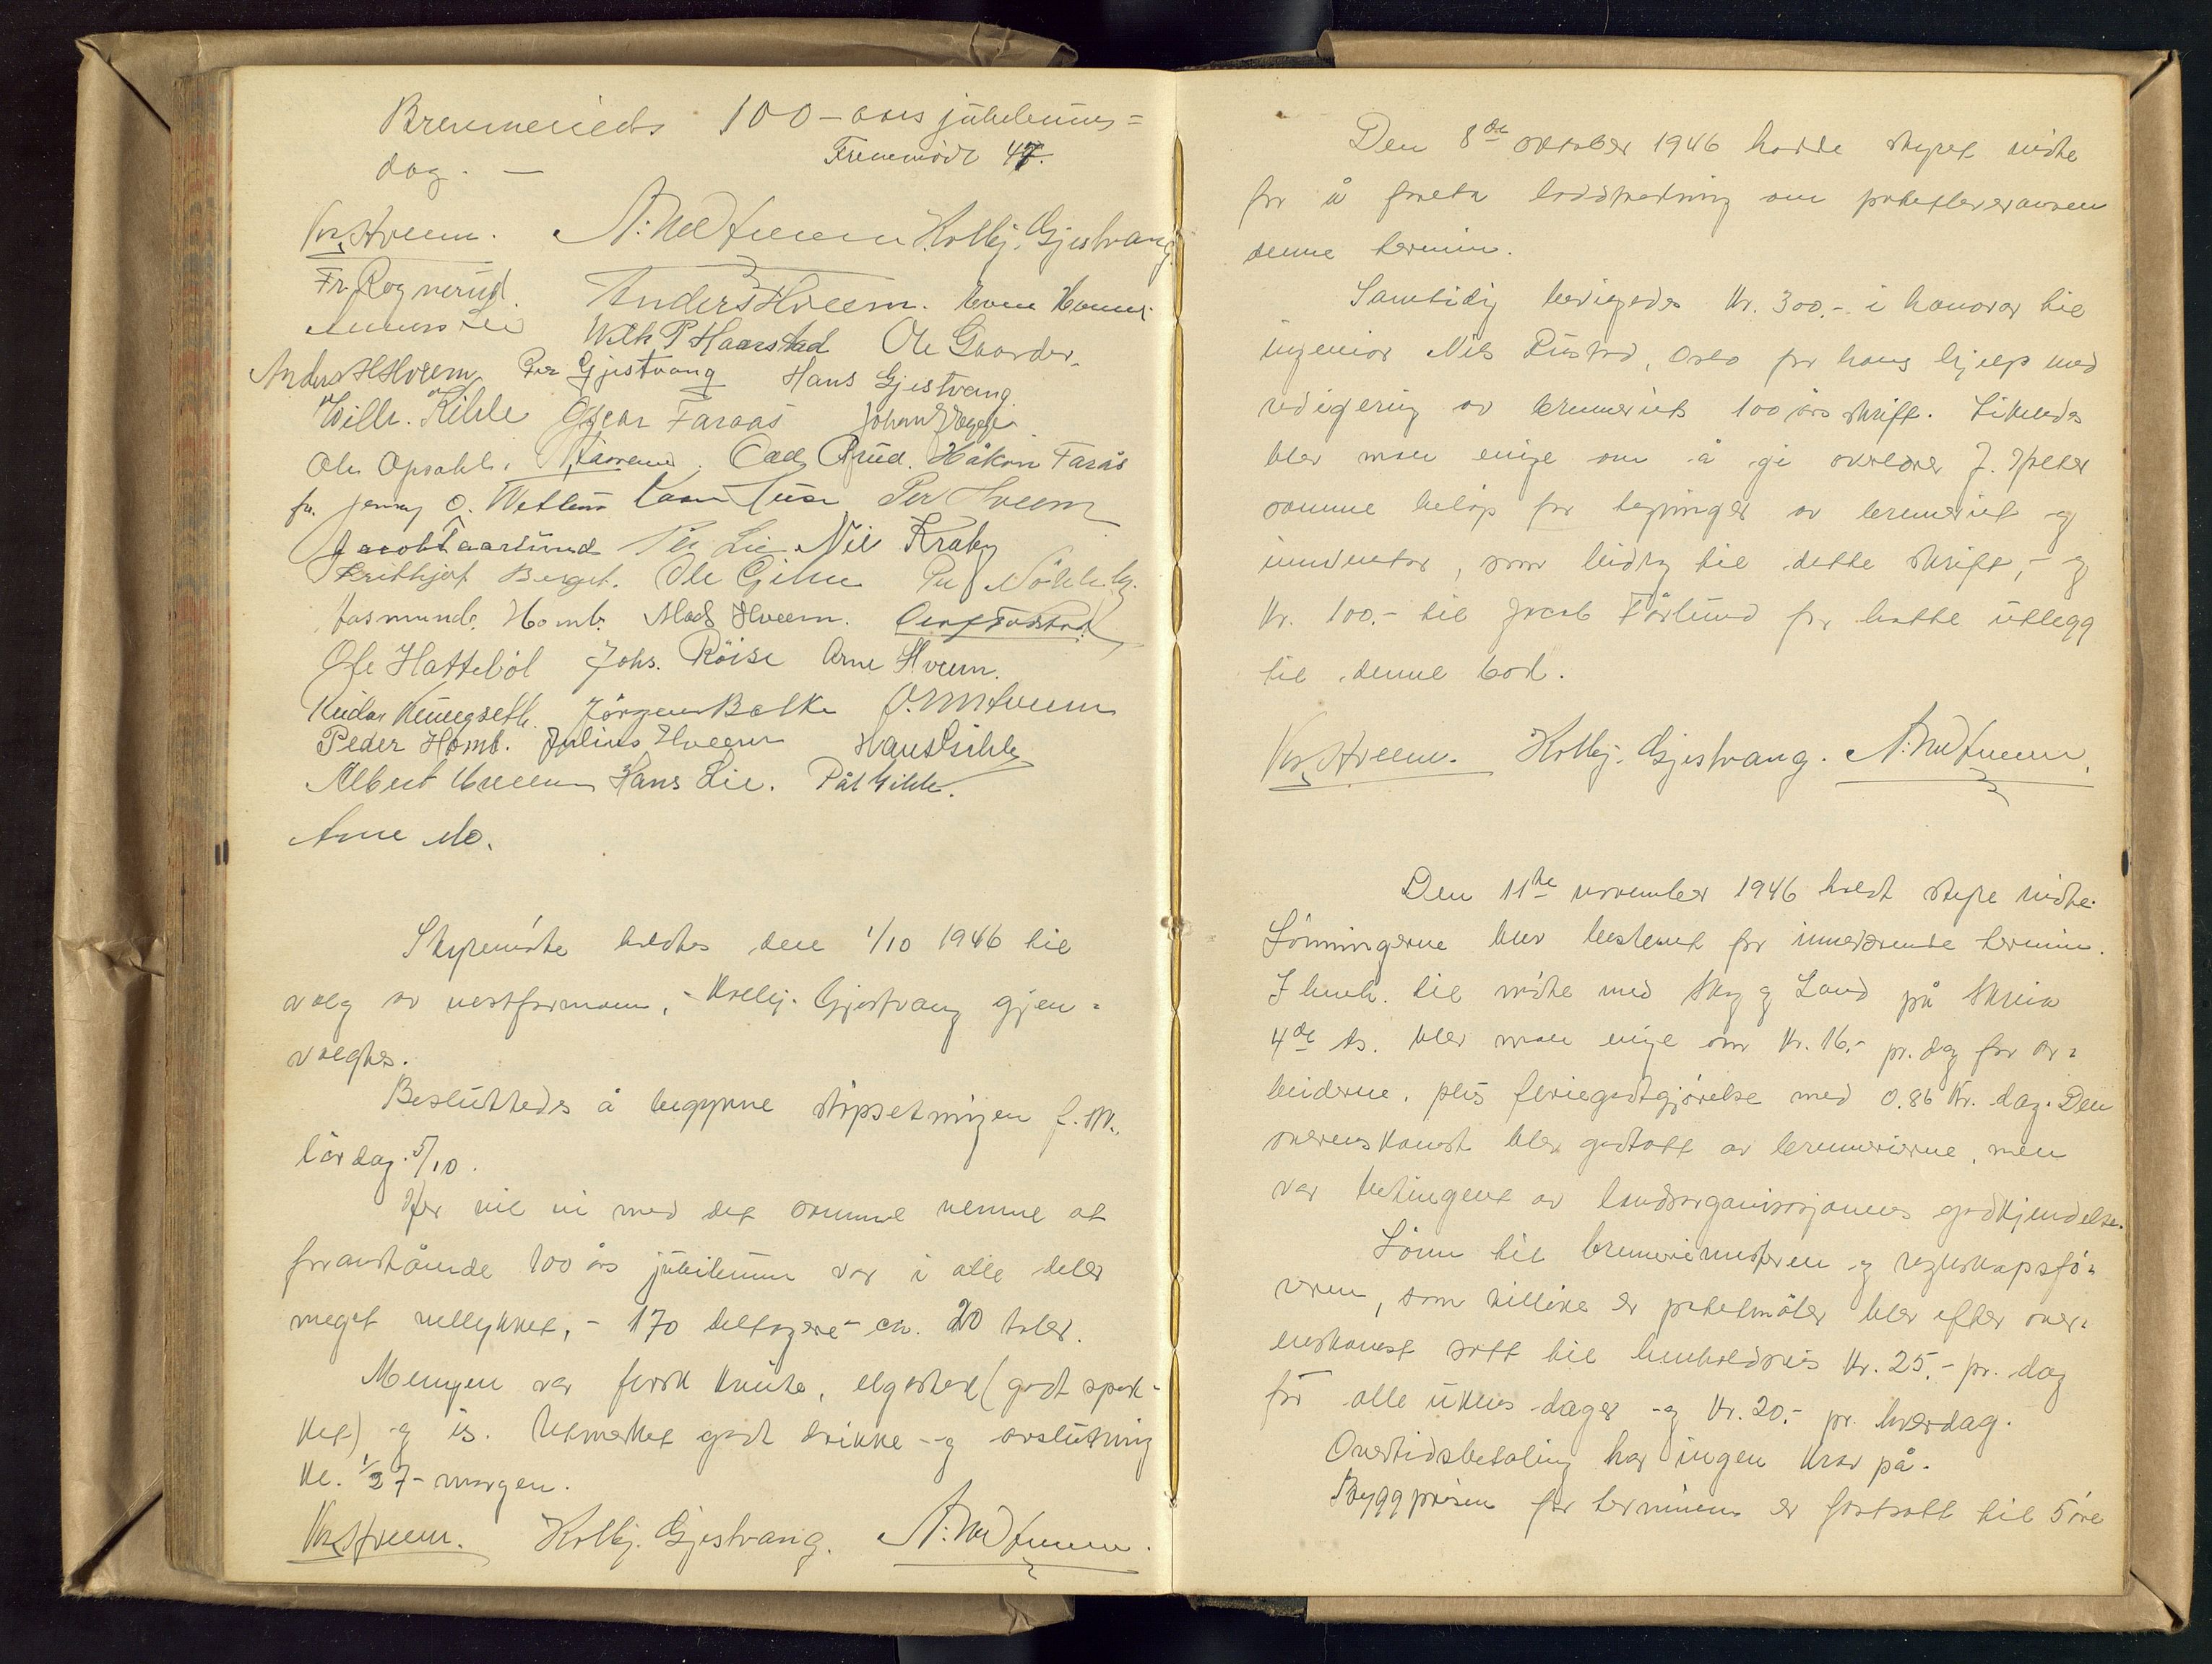 Brenneriets 100-års jubileums=
dag. — Fremmødt 47.
Kr. Hveem. N. M. Hveem Kolbj. Gjestvang
Fr. Rognerud. Anders Hveem.
Anders Lie Wilh P Haarstad Ole Gaarder.
Anders H Hveem Per Gjestvang Hans Gjestvang
Wilh. Kihle Oscar Faraas Johan
Ole Opsahl. Rud. Håkon Farås
fr. Jenny O. Wetlem Per Hveem
Jacob Faarlund Per Lie Nils Kraby
Frithjof Berget. Ole Gihle Per Nökleby.
Aasmund Homb. Mads Hveem.
Ole Hattebøl Johs. Röise Arne Hveem.
Reidar Jørgen Balke O. M. Hveem
Peder Homb. Julius Hveem Hans Gihle
Albert Hveem Hans Lie. Pål Gihle.
Arne Mo.
Styremöte holdtes den 1/10 1946 til
valg av nestformann, - Kolbj. Gjestvang gjen=
valgtes.
Besluttedes å begynne støpsetningen f. m.
lördag 5/10.
Her vil vi med det samme nevne at
foranstående 100 års jubileum var i alle deler
meget vellykket, - 170 deltagere - ca. 20 taler.
Menyen var fersk suppe, elgstek (godt spek-
ket) og is. Utmerket godt drikke - og avslutning
kl. 1/2 7 - morgen.
Kr. Hveem. Kolbj. Gjestvang. N. M. Hveem.
Den 8de oktober 1946 hadde styret møte
for å foreta loddtrekning om potetleveransen
denne termin.
Samtidig bevilgedes kr. 300.- i honorar til
ingeniør Nils Rustad, Oslo for hans hjelp med
redigering av brenneriets 100 års skrift. Likeledes
blev man enige om å gi overlærer J.
samme beløp for tegninger av brenneriet og
inventar, som bidrag til dette skrift, - og
kr. 100.- til Jacob Fårlund for hatte utlegg
til denne bok.
Kr. Hveem. Kolbj. Gjestvang. N. M. Hveem.
Den 11te november 1946 holdt styre møte.
Lönningerne blev bestemt for inneværende termin.
I henh. til møte med Skog og Land på Skreia
4de ds. blev man enige om kr. 16.- pr. dag for ar=
beiderne, plus feriegodtgjörelse med 0.86 kr. dag. Den
overenskomst blev godtatt av brennerierne, men
var betinget av landsorganisasjonens godkjendelse.
Lönn til brennerimesteren og regnskapsfö=
reren, som tillike er potetmåler blev efter over=
enskomst satt til henholdsvis kr. 25.- pr. dag
for alle ukens dager - og kr. 20.- pr. hverdag.
Overtidsbetaling har ingen krav på.
Byggprisen for terminen er fastsatt til 5 öre